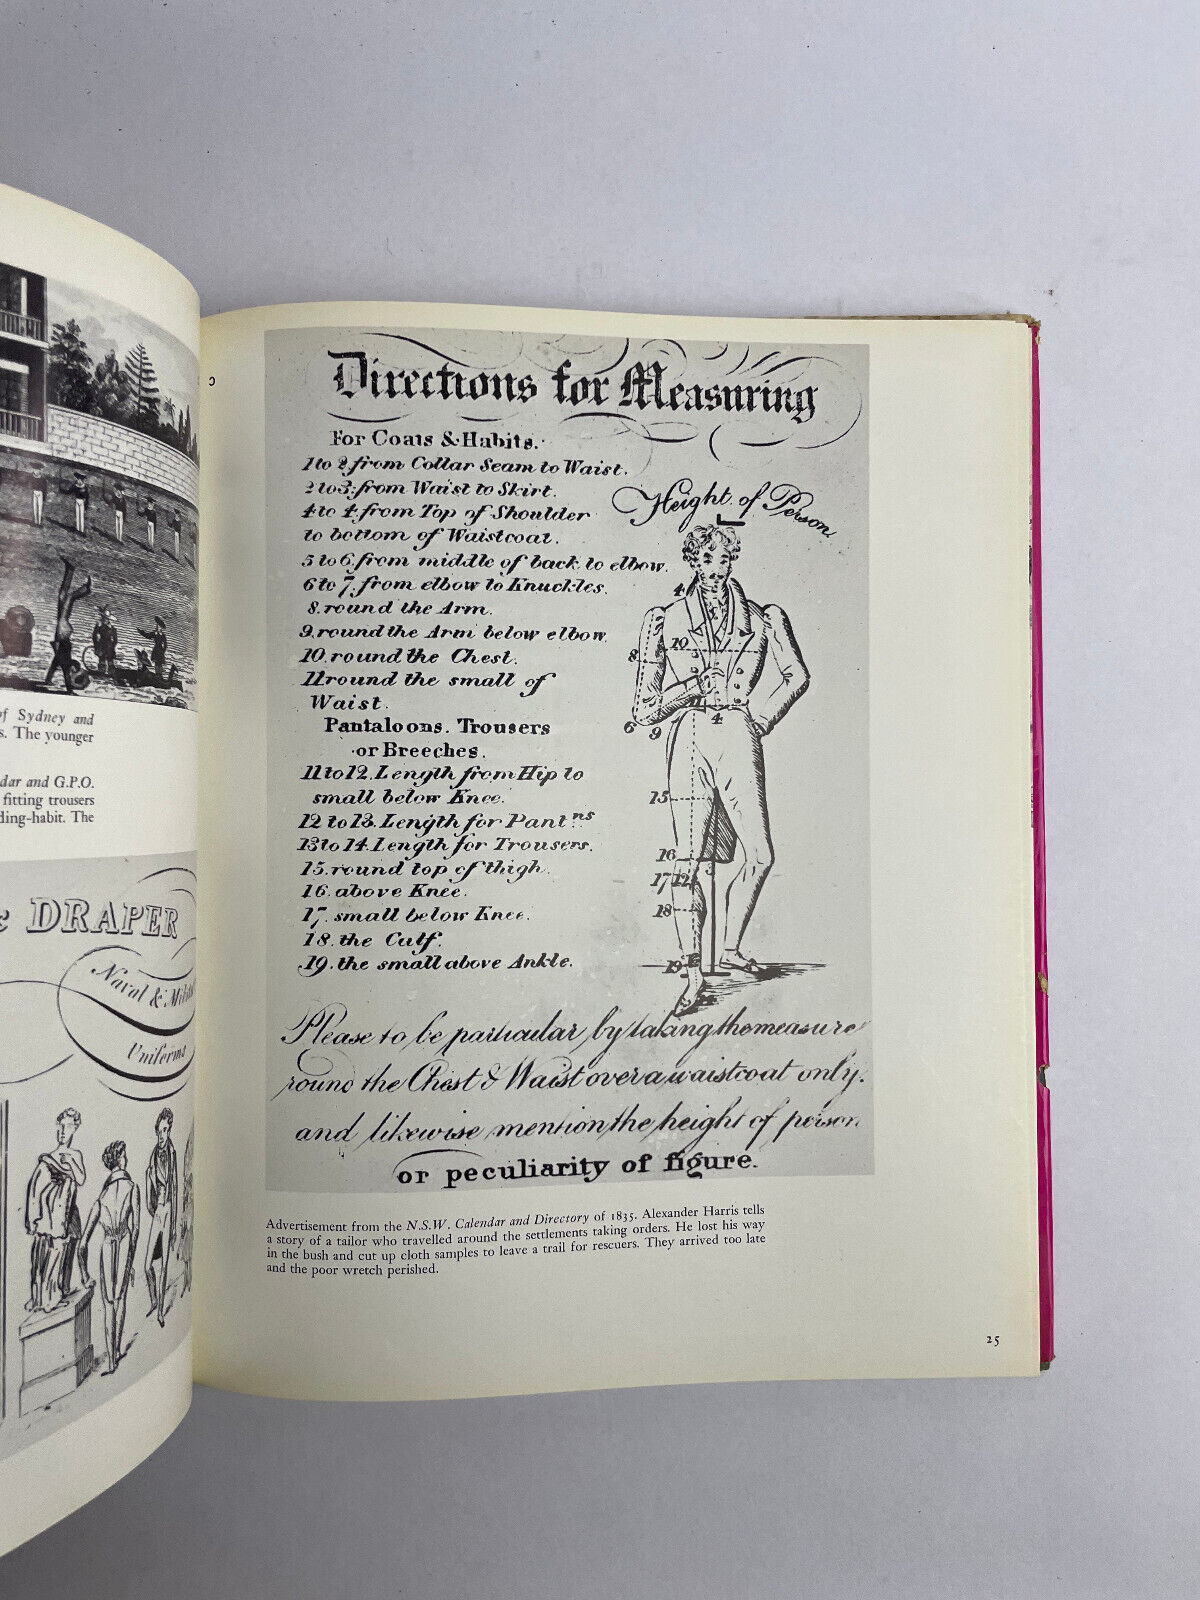 of Sydney and
s. The younger
dar and G.P.O.
fitting trousers
ding-habit. The
& DRAPER
Naval &
Uniforms
Directions for Measuring
For Coats & Habits.
1 to 2. from Collar Seam to Waist.
2 to 3. from Waist to Skirt.
4 to 4. from Top of Shoulder
to bottom of Waistcoat.
5 to 6. from middle of back to elbow.
6 to 7. from elbow to Knuckles.
8. round the Arm.
9. round the Arm below elbow.
10. round the Chest.
11 round the small of
Waist.
Pantaloons. Trousers
or Breeches.
11 to 12. Length from Hip to
small below Knee.
12 to 13. Length for Pantns
13 to 14. Length for Trousers.
15. round top of thigh.
16. above Knee.
17. small below Knee.
18. the Calf.
19. the small above Ankle.
Height of Person.
4
10
8
11
6
9
4
15
16
17 12
18
19
Please to be particular, by taking the measure
round the Chest & Waist over a waistcoat only.
and likewise mention the height of person
or peculiarity of figure.
Advertisement from the N.S.W. Calendar and Directory of 1835. Alexander Harris tells
a story of a tailor who travelled around the settlements taking orders. He lost his way
in the bush and cut up cloth samples to leave a trail for rescuers. They arrived too late
and the poor wretch perished.
25